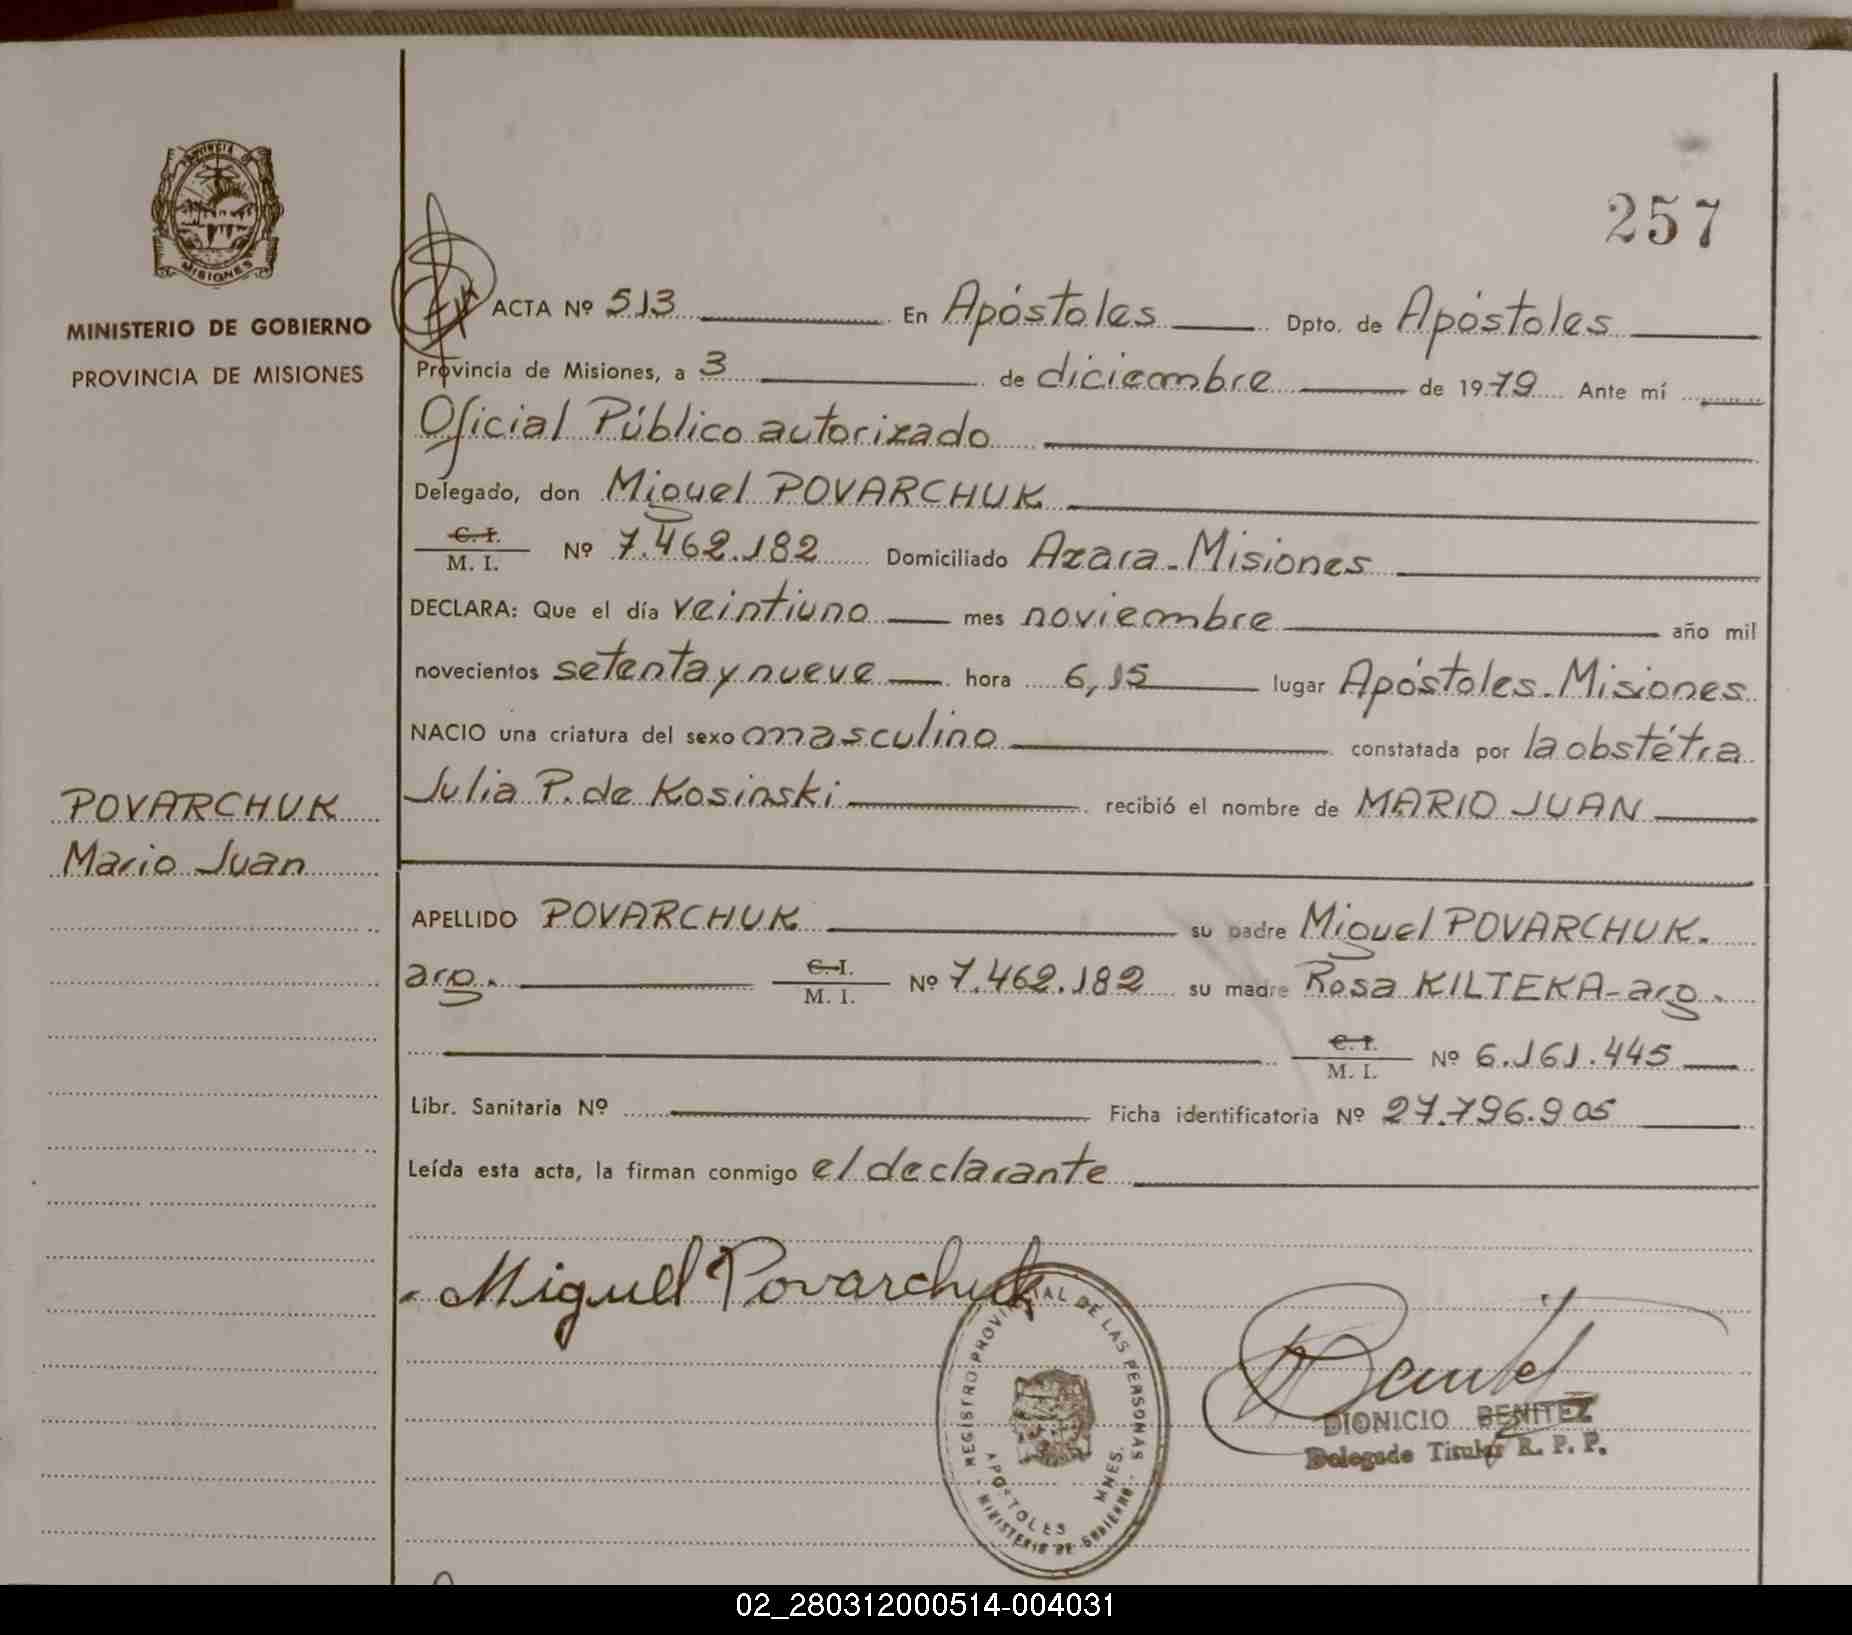 257
PROVINCIA DE
MISIONES
MINISTERIO DE GOBIERNO
PROVINCIA DE MISIONES
ACTA Nº 513 En Apóstoles Dpto. de Apóstoles
Provincia de Misiones, a 3 de diciembre de 1979 Ante mí
Oficial Público autorizado
Delegado, don Miguel POVARCHUK
C. I.
M. I. Nº 7.462.182 Domiciliado Azara - Misiones
DECLARA: Que el día veintiuno mes noviembre año mil
novecientos setenta y nueve hora 6,15 lugar Apóstoles - Misiones
NACIO una criatura del sexo masculino constatada por la obstétra
Julia P. de Kosinski recibió el nombre de MARIO JUAN
POVARCHUK
Mario Juan
APELLIDO POVARCHUK su padre Miguel POVARCHUK.
arg. C. I. M. I. Nº 7.462.182 su madre Rosa KILTEKA - arg.
C. I. M. I. Nº 6.161.445
Libr. Sanitaria Nº Ficha identificatoria Nº 27.796.905
Leída esta acta, la firman conmigo el declarante
Miguel Povarchuk
REGISTRO PROVINCIAL DE LAS PERSONAS
APOSTOLES MNES.
MINISTERIO DE GOBIERNO
Benitez
DIONICIO BENITEZ
Delegado Titular R. P. P.
02_280312000514-004031